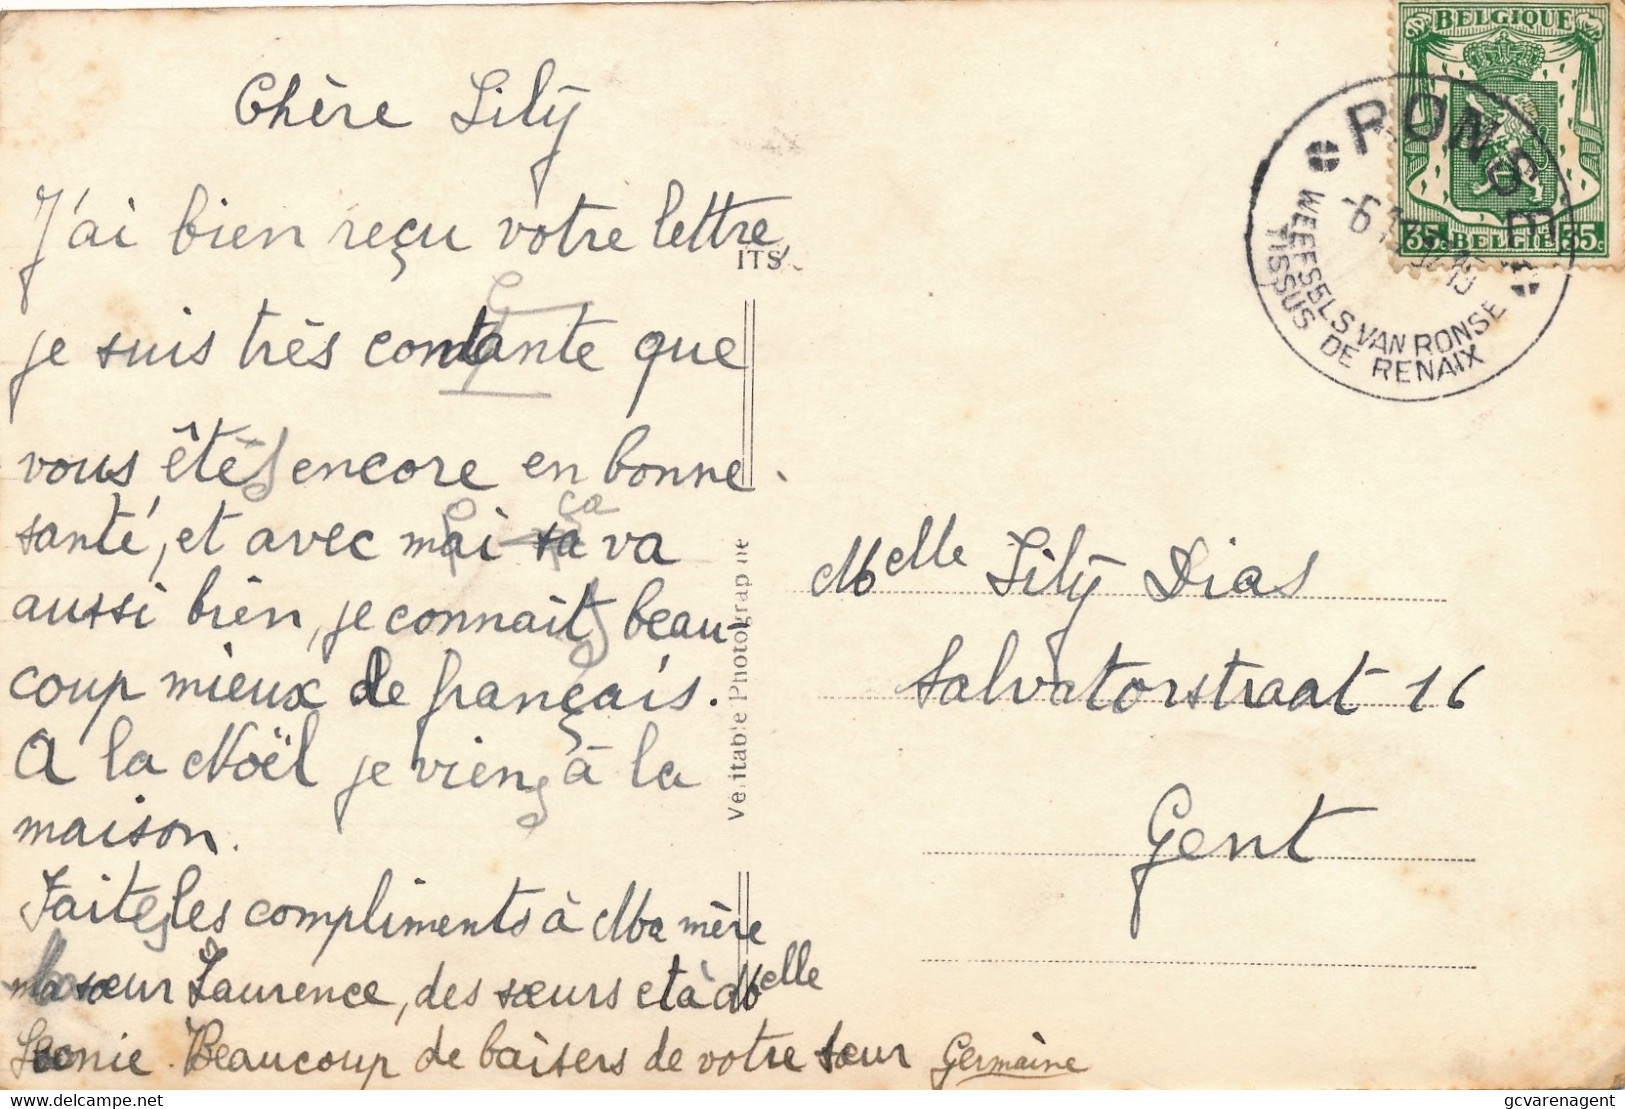 Chère Lily
J'ai bien reçu votre lettre,
je suis très contante que
vous êtes encore en bonne
santé, et avec mai sa ça va
aussi bien, je connait beau-
coup mieux le français.
A la Noël je viens à la
maison.
Faites les compliments à Ma mère
ma sœur Laurence, des sœurs et à Melle
Leonie. Beaucoup de baisers de votre sœur Germaine
ITS
Véritable Photographie
BELGIQUE
35c BELGIË 35c
RONSE
WEEFSELS VAN RONSE
TISSUS DE RENAIX
Melle Lily Dias
Salvatorstraat 16
Gent
delcampe.net
gcvarenagent